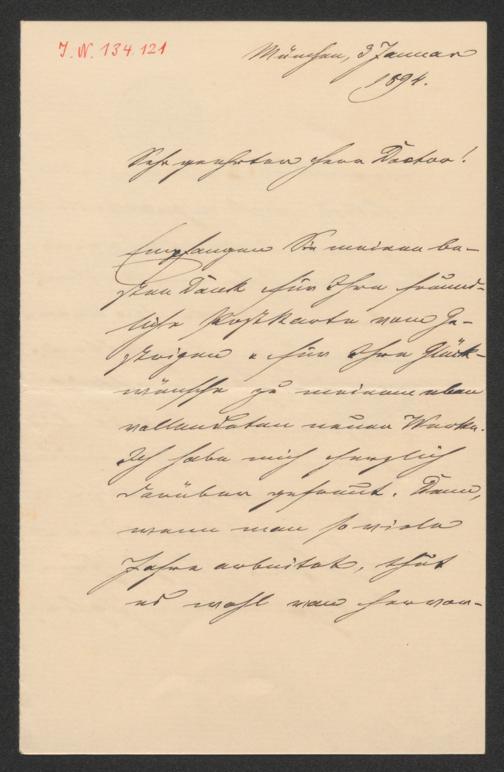 J. N. 134.121
München, 3 Januar
1894.
Sehr geehrter Herr Doctor!
Empfangen Sie meinen be-
sten Dank für Ihre freund-
liche Postkarte vom Ge-
strigen u für Ihre Glück-
wünsche zu meinem eben
vollendeten neuen Werke.
Ich habe mich herzlich
darüber gefreut. Denn,
wenn man so viele
Jahre arbeitet, thut
es wohl von hervor-